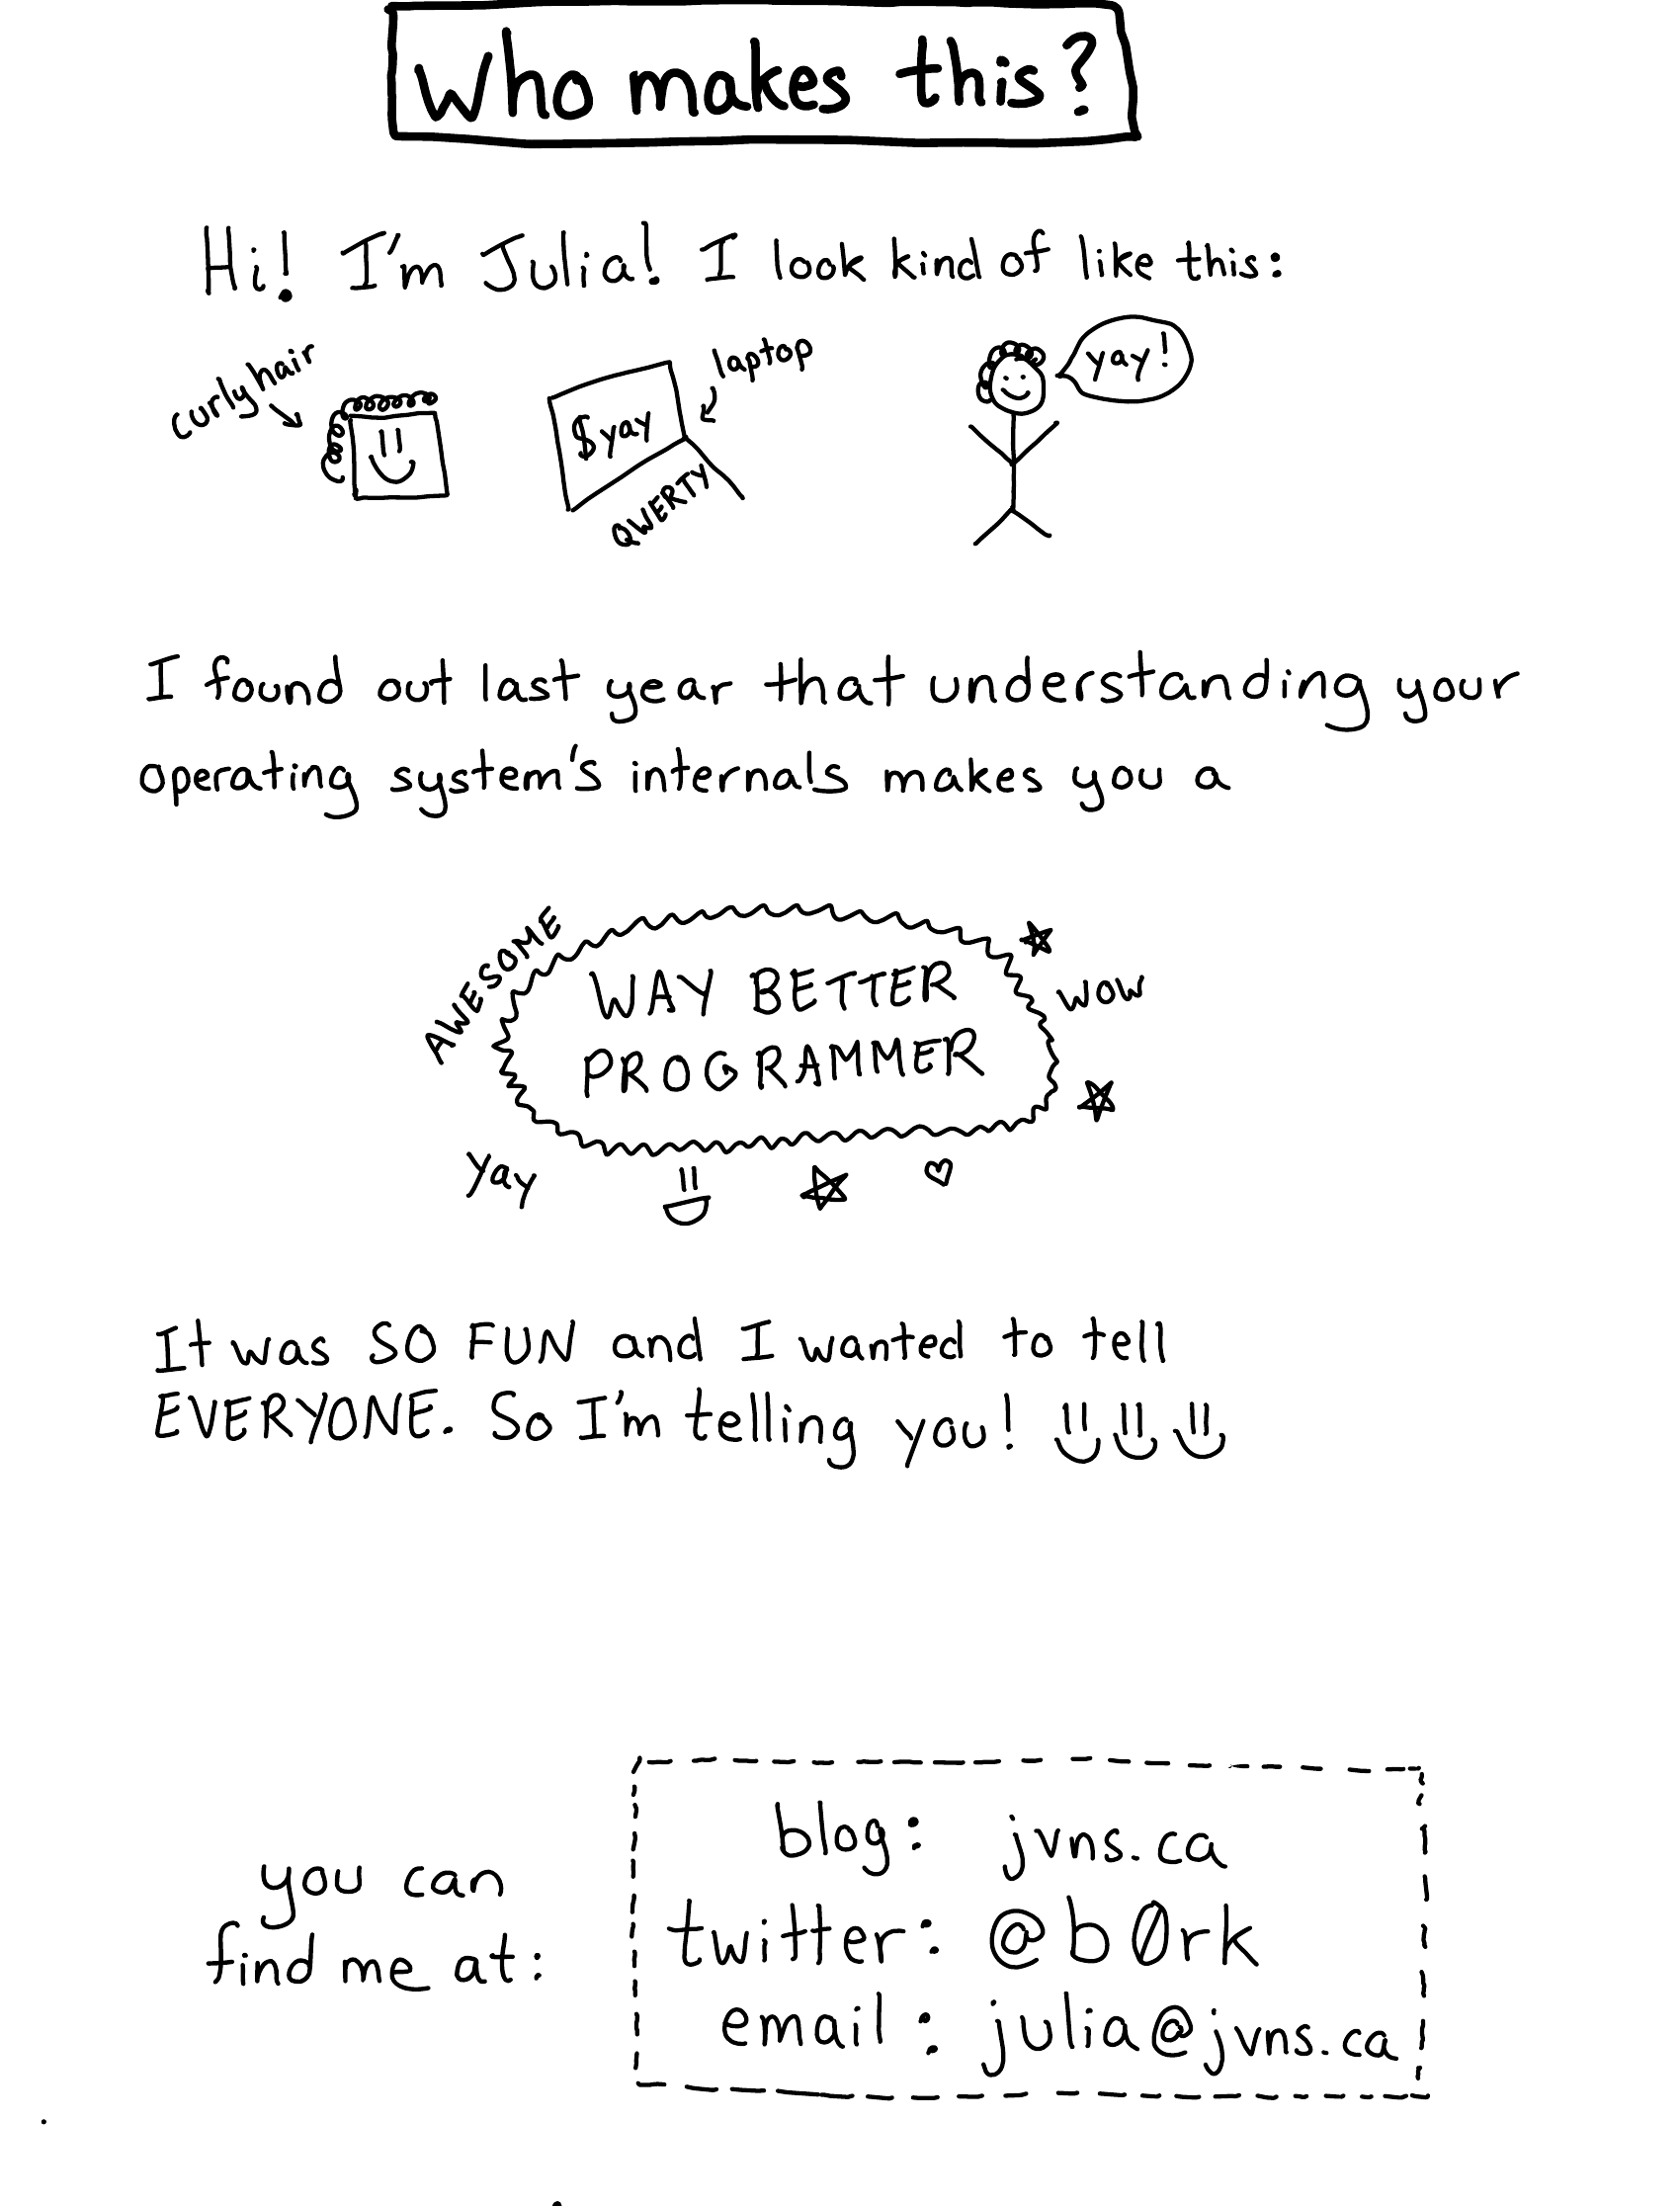 Who makes this?
Hi! I'm Julia! I look kind of like this:
curly hair
laptop
$yay
QWERTY
yay!
I found out last year that understanding your
operating system's internals makes you a
AWESOME
WAY BETTER
PROGRAMMER
wow
yay
It was SO FUN and I wanted to tell
EVERYONE. So I'm telling you!
you can
find me at:
blog: jvns.ca
twitter: @b0rk
email: julia@jvns.ca